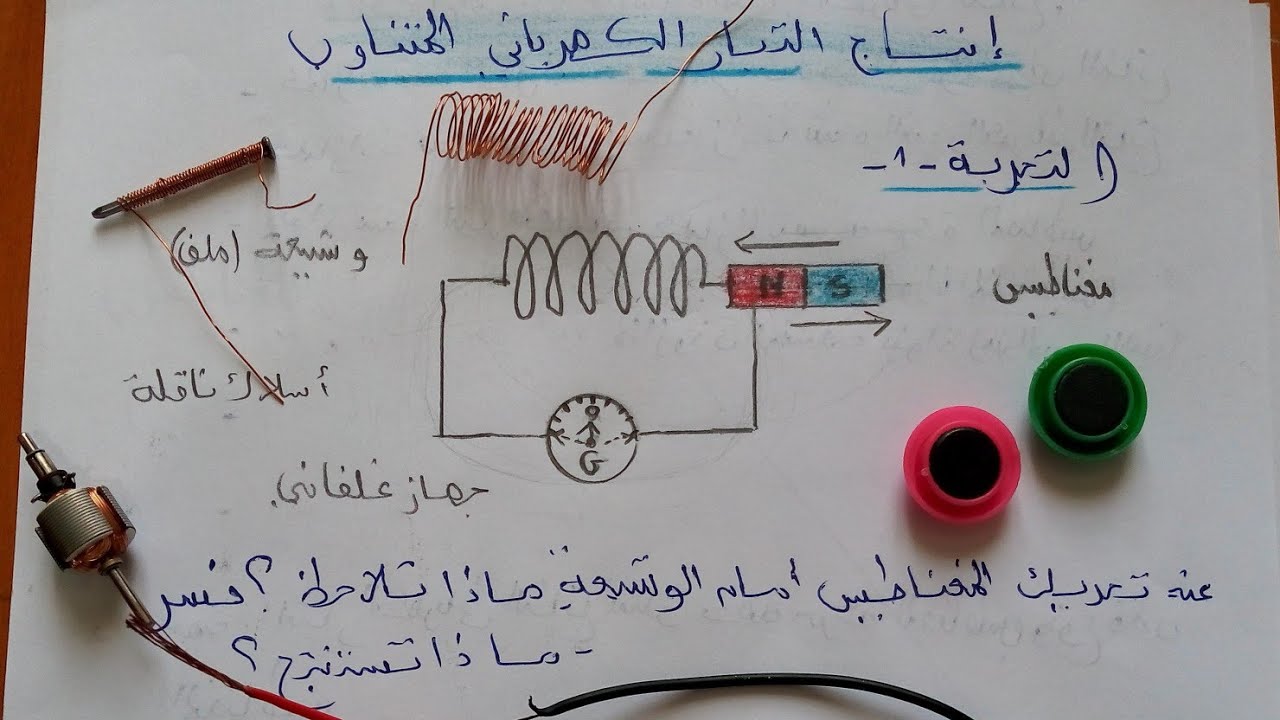 إنتاج التيار الكهربائي المتناوب
التجربة -1-
وشيعة (ملف)
N S
مغناطيس
أسلاك ناقلة
G
جهاز غلفاني.
عند تحريك المغناطيس أمام الوشيعة ماذا تلاحظ؟ فسر
- ماذا تستنتج؟